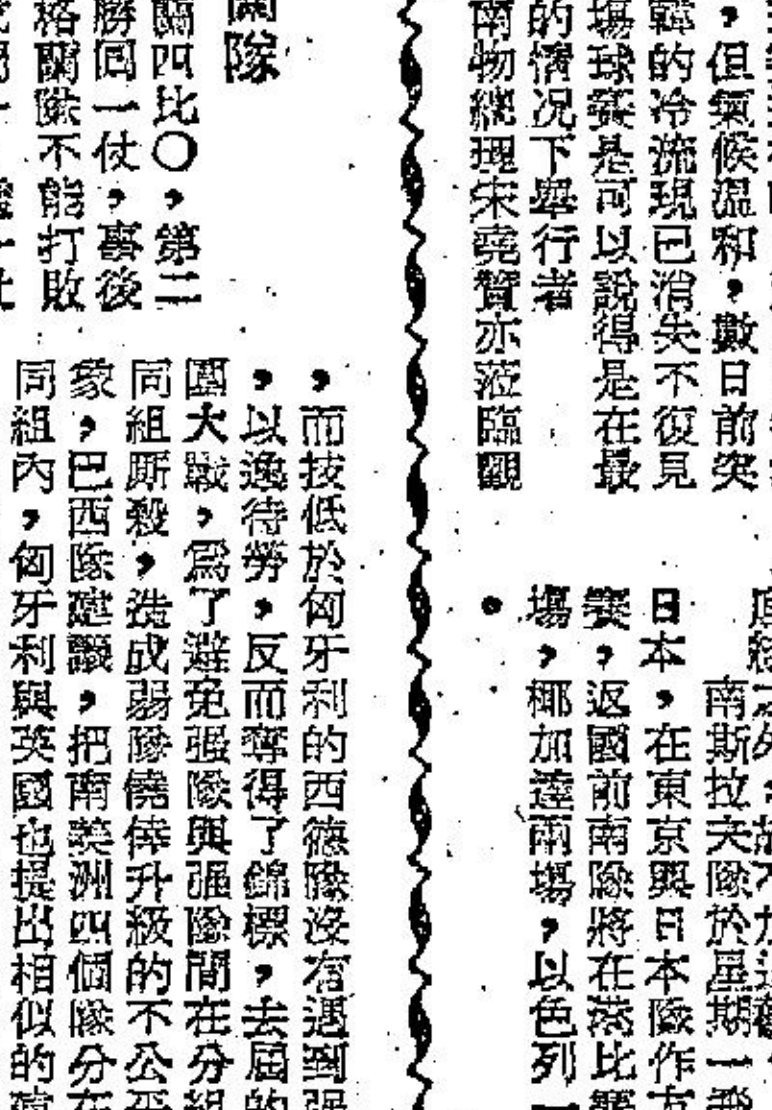 ，但氣候温和，數日前突
韓的冷流現已消失不復見
塲球賽是可以說得是在最
的情况下舉行者
南物總理宋堯贊亦蒞臨觀
南斯拉夫隊於星期一飛
日本，在東京與日本隊作友
賽，返國前南隊將在港比賽
塲，椰加達兩塲，以色列一
。
蘭隊
蘭四比〇，第二
勝回一仗，事後
格蘭隊不能打敗
，而技低於匈牙利的西德隊沒有遇到强
，以逸待勞，反而奪得了錦標，去屆的
圍大戰，爲了避免强隊與强隊間在分組
同組厮殺，造成弱隊僥倖升級的不公平
象，巴西隊建議，把南美洲四個隊分在
同組內，匈牙利與英國也提出相似的建